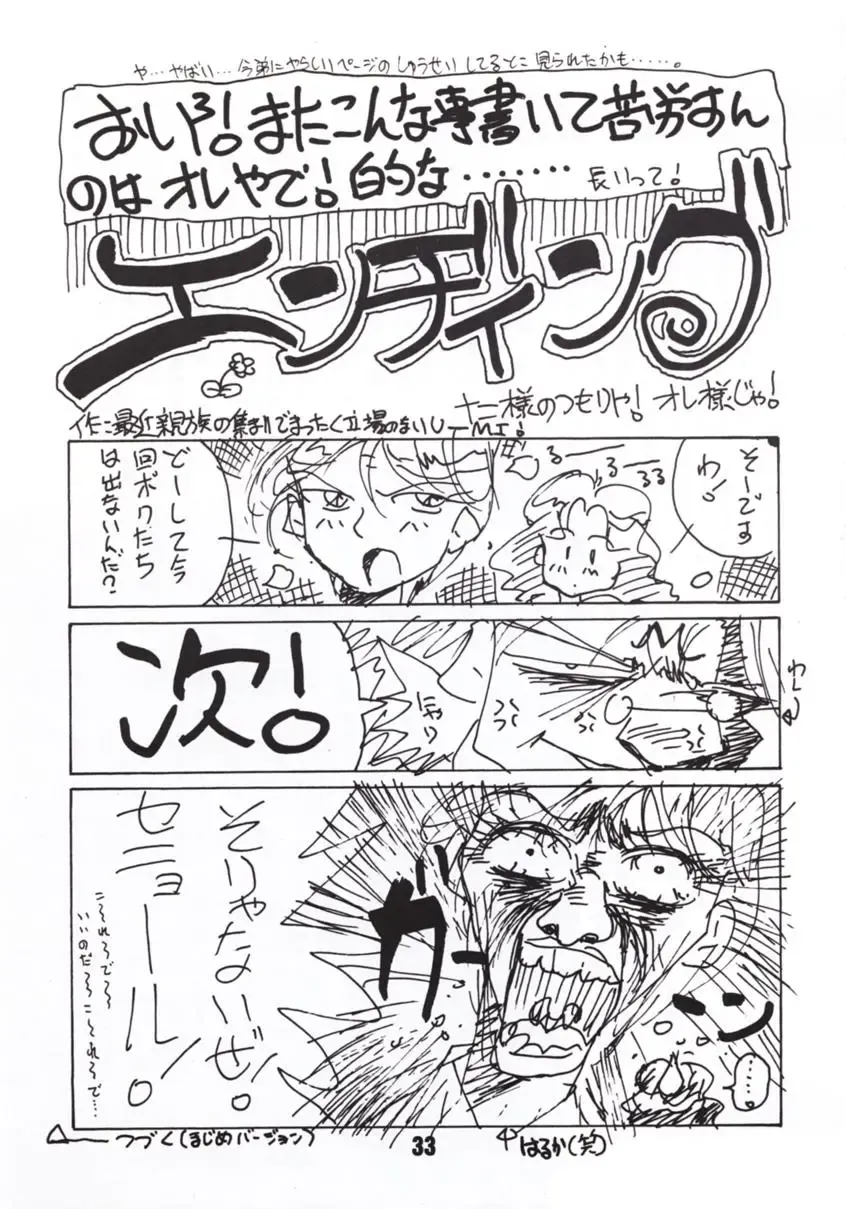 や…やばい…今弟にやらしいページのしゅうせいしてるとこ見られたかも……。
おいろ!またこんな事書いて苦労すん
のはオレやで!的な・・・・・・・
長いって!
エンディング
ナニ様のつもりや!オレ様じゃ!
作:最近親族の集まりでまったく立場のないU-MI!
そーです
わ!
るーーるーー
るる
どーして今
回ボクたち
は出ないんだ?
次!
にやり
わーん
そりゃないぜ!
セニョール。
これでいいのだろうか
ガーン
……。
つづく(まじめバージョン)
33
はるか(笑)